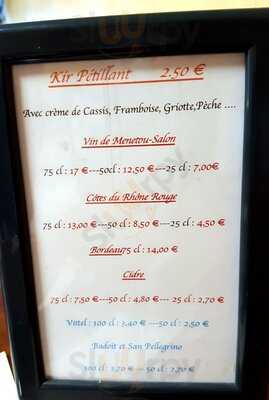 Kir Pétillant 2.50 €
Avec crème de Cassis, Framboise, Griotte,Pêche ....
Vin de Menetou-Salon
75 cl : 17 €---50cl : 12,50 €---25 cl : 7,00€
Côtes du Rhône Rouge
75 cl : 13,00 €---50 cl : 8,50 €---25 cl : 4,50 €
Bordeau75 cl : 14,00 €
Cidre
75 cl : 7,50 €---50 cl : 4,80 €--- 25 cl : 2,70 €
Vittel : 100 cl : 3,40 € ---50 cl : 2,50 €
Badoit et San Pellegrino
100 cl : 3,70 € --- 50 cl : 2,70 €